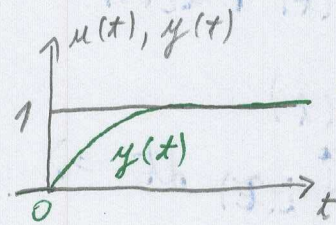 u(t), y(t)
1
y(t)
0
t